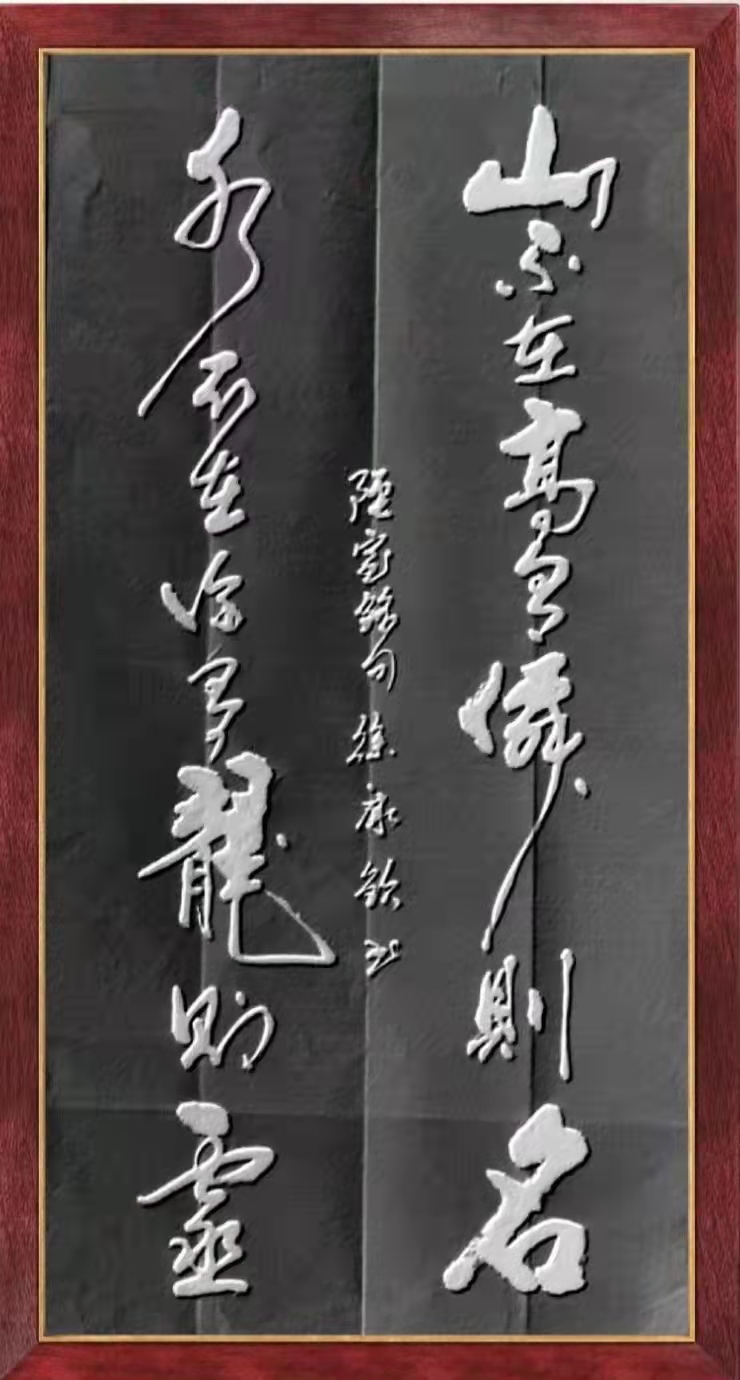 山不在高有僊則名
陋室銘句 徐 欽书
水不在深有龍則靈